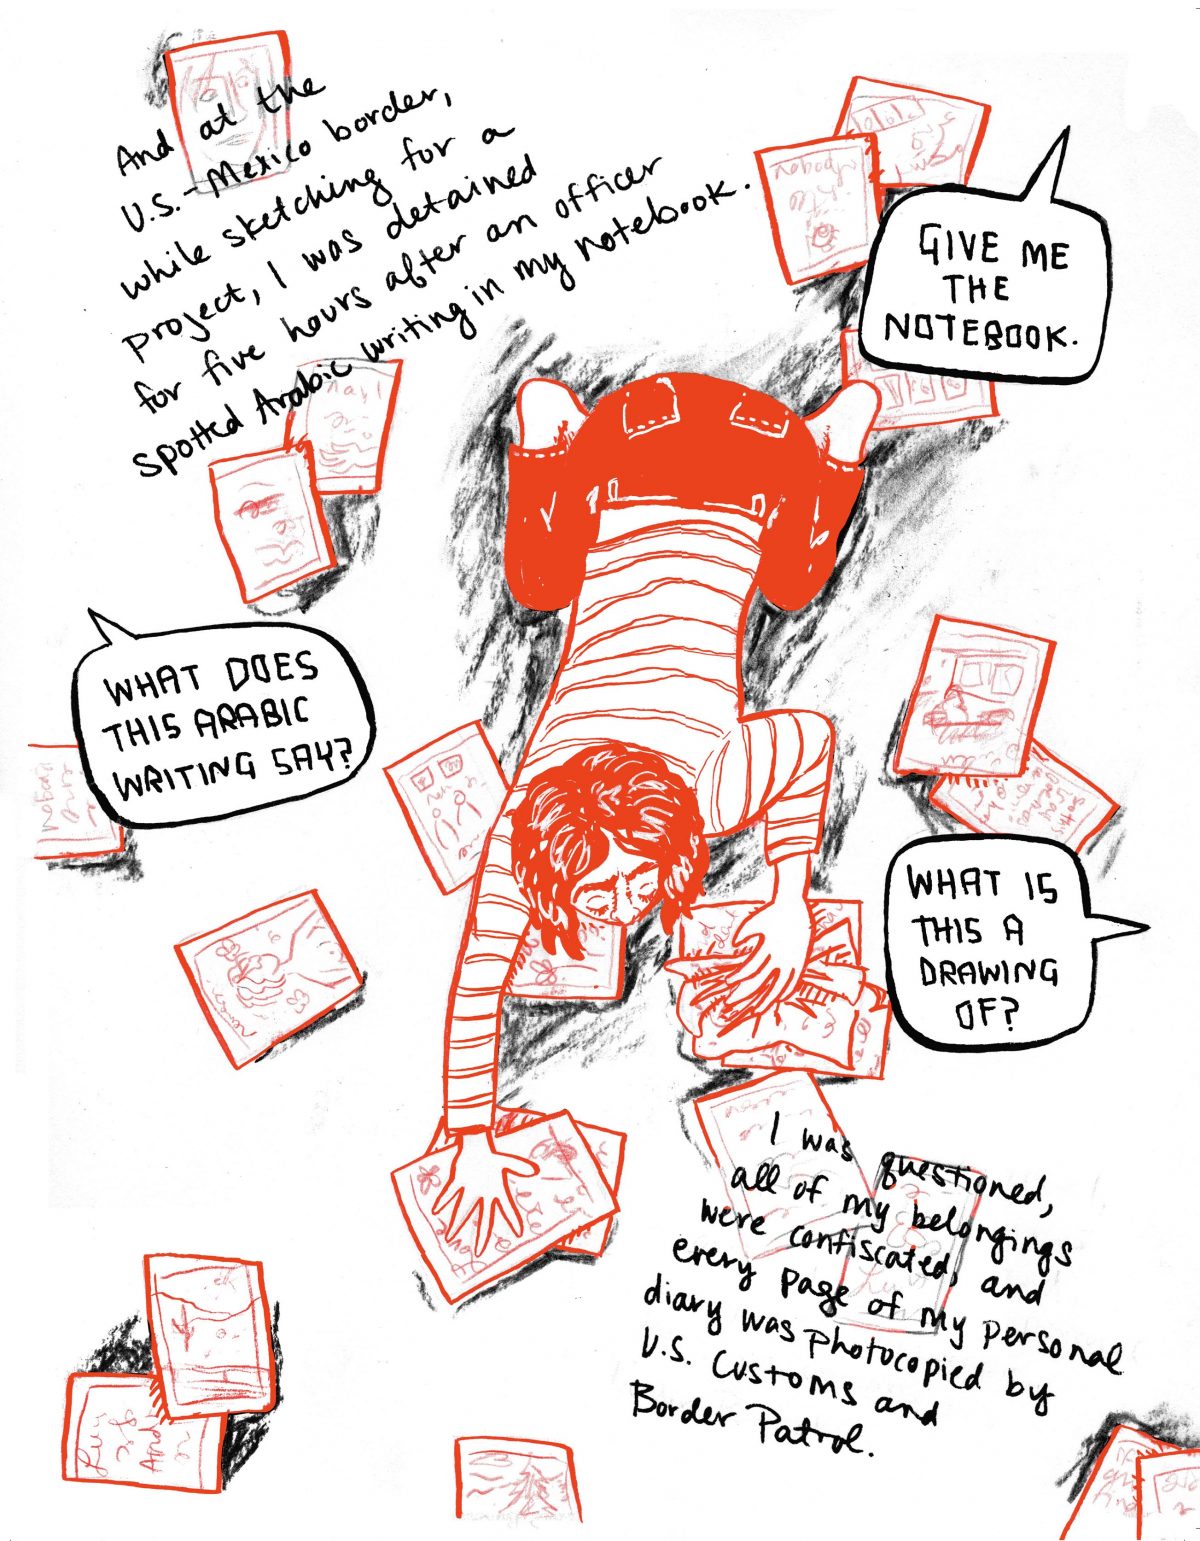 And at the
U.S.-Mexico border,
while sketching for a
project, I was detained
for five hours after an officer
spotted Arabic writing in my notebook.
GIVE ME
THE
NOTEBOOK.
WHAT DOES
THIS ARABIC
WRITING SAY?
WHAT IS
THIS A
DRAWING
OF?
I was questioned,
all of my belongings
were confiscated, and
every page of my personal
diary was photocopied by
U.S. Customs and
Border Patrol.
nobody